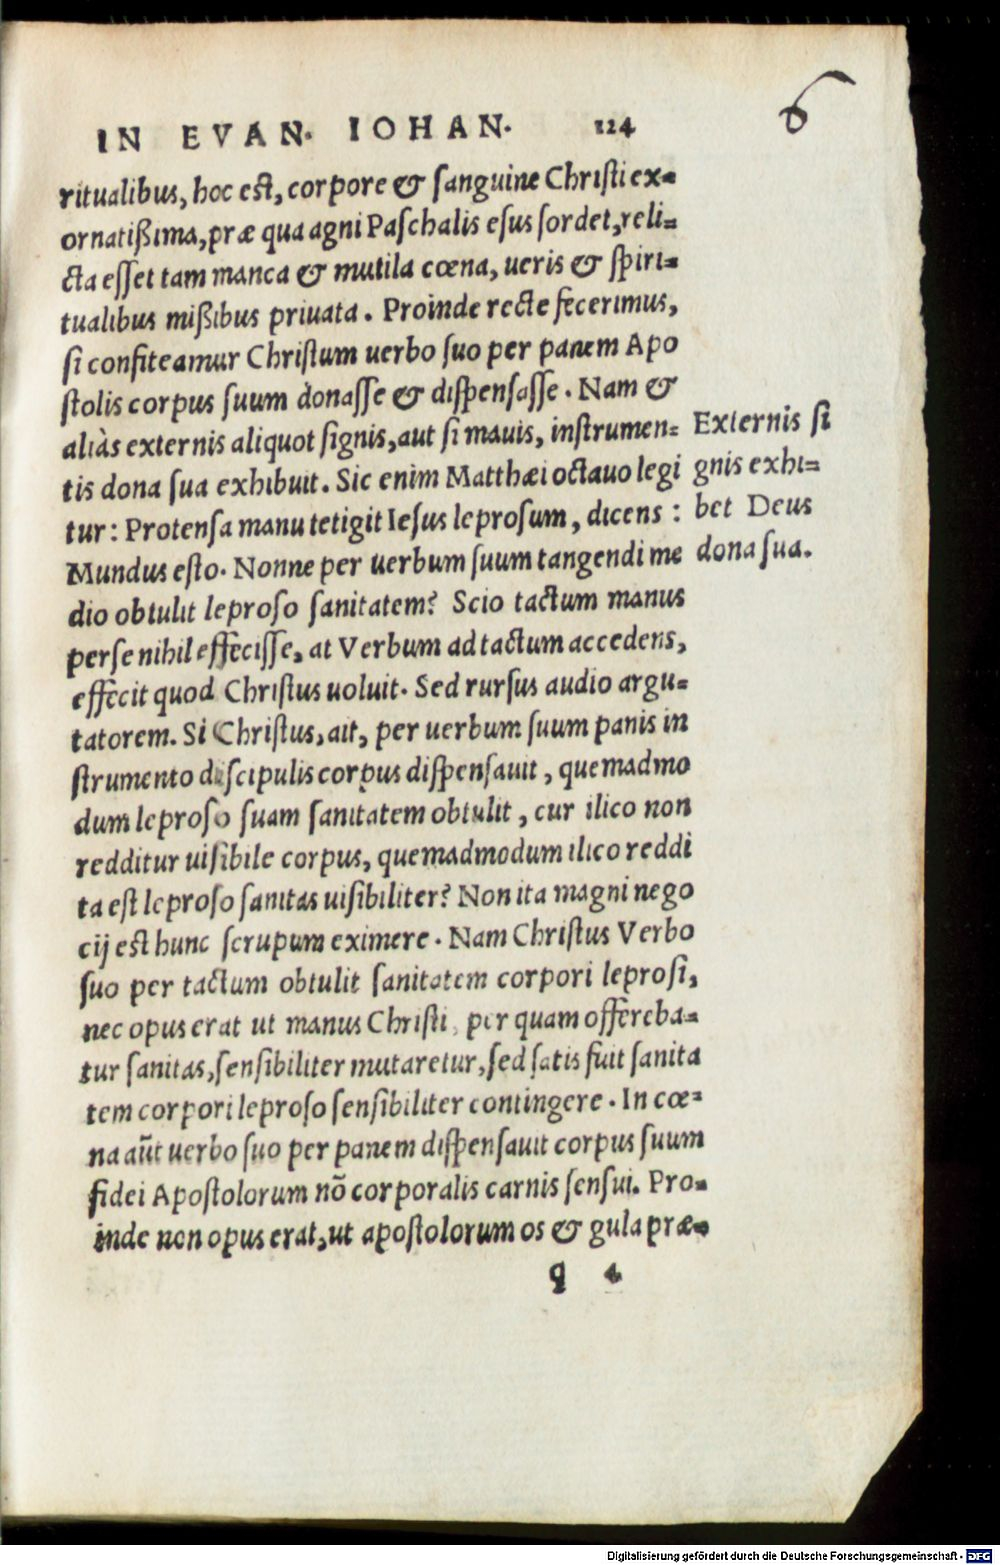 IN EVAN. IOHAN. 124
6
ritualibus, hoc est, corpore & sanguine Christi ex-
ornatißima, præ qua agni Paschalis esus sordet, reli-
cta esset tam manca & mutila cœna, ueris & spiri-
tualibus mißibus priuata. Proinde recte fecerimus,
si confiteamur Christum uerbo suo per panem Apo
stolis corpus suum donasse & dispensasse. Nam &
aliàs externis aliquot signis, aut si mauis, instrumen-
tis dona sua exhibuit. Sic enim Matthæi octauo legi
tur: Protensa manu tetigit Iesus leprosum, dicens:
Mundus esto. Nonne per uerbum suum tangendi me
dio obtulit leproso sanitatem? Scio tactum manus
per se nihil effecisse, at Verbum ad tactum accedens,
effecit quod Christus uoluit. Sed rursus audio argu-
tatorem. Si Christus, ait, per uerbum suum panis in
strumento discipulis corpus dispensauit, quemadmo
dum leproso suam sanitatem obtulit, cur ilico non
redditur uisibile corpus, quemadmodum ilico reddi
ta est leproso sanitas uisibiliter? Non ita magni nego
cij est hunc scrupum eximere. Nam Christus Verbo
suo per tactum obtulit sanitatem corpori leprosi,
nec opus erat ut manus Christi, per quam offereba-
tur sanitas, sensibiliter mutaretur, sed satis fuit sanita
tem corpori leproso sensibiliter contingere. In cœ-
na aũt uerbo suo per panem dispensauit corpus suum
fidei Apostolorum nõ corporalis carnis sensui. Pro-
inde non opus erat, ut apostolorum os & gula præ-
q 4
Externis si
gnis exhi-
bet Deus
dona sua.
Digitalisierung gefördert durch die Deutsche Forschungsgemeinschaft - DFG